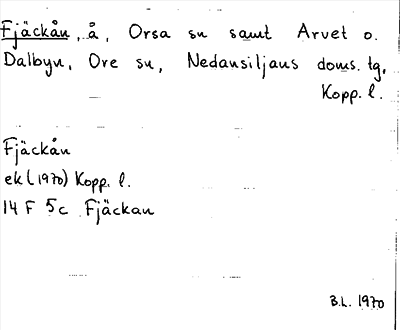 Fjäckån, å, Orsa sn samt Arvet o.
Dalbyn, Ore sn, Nedansiljans doms. tg,
Kopp. l.
Fjäckån
ek (1970) Kopp. l.
14 F 5c Fjäckan
B.L. 1970